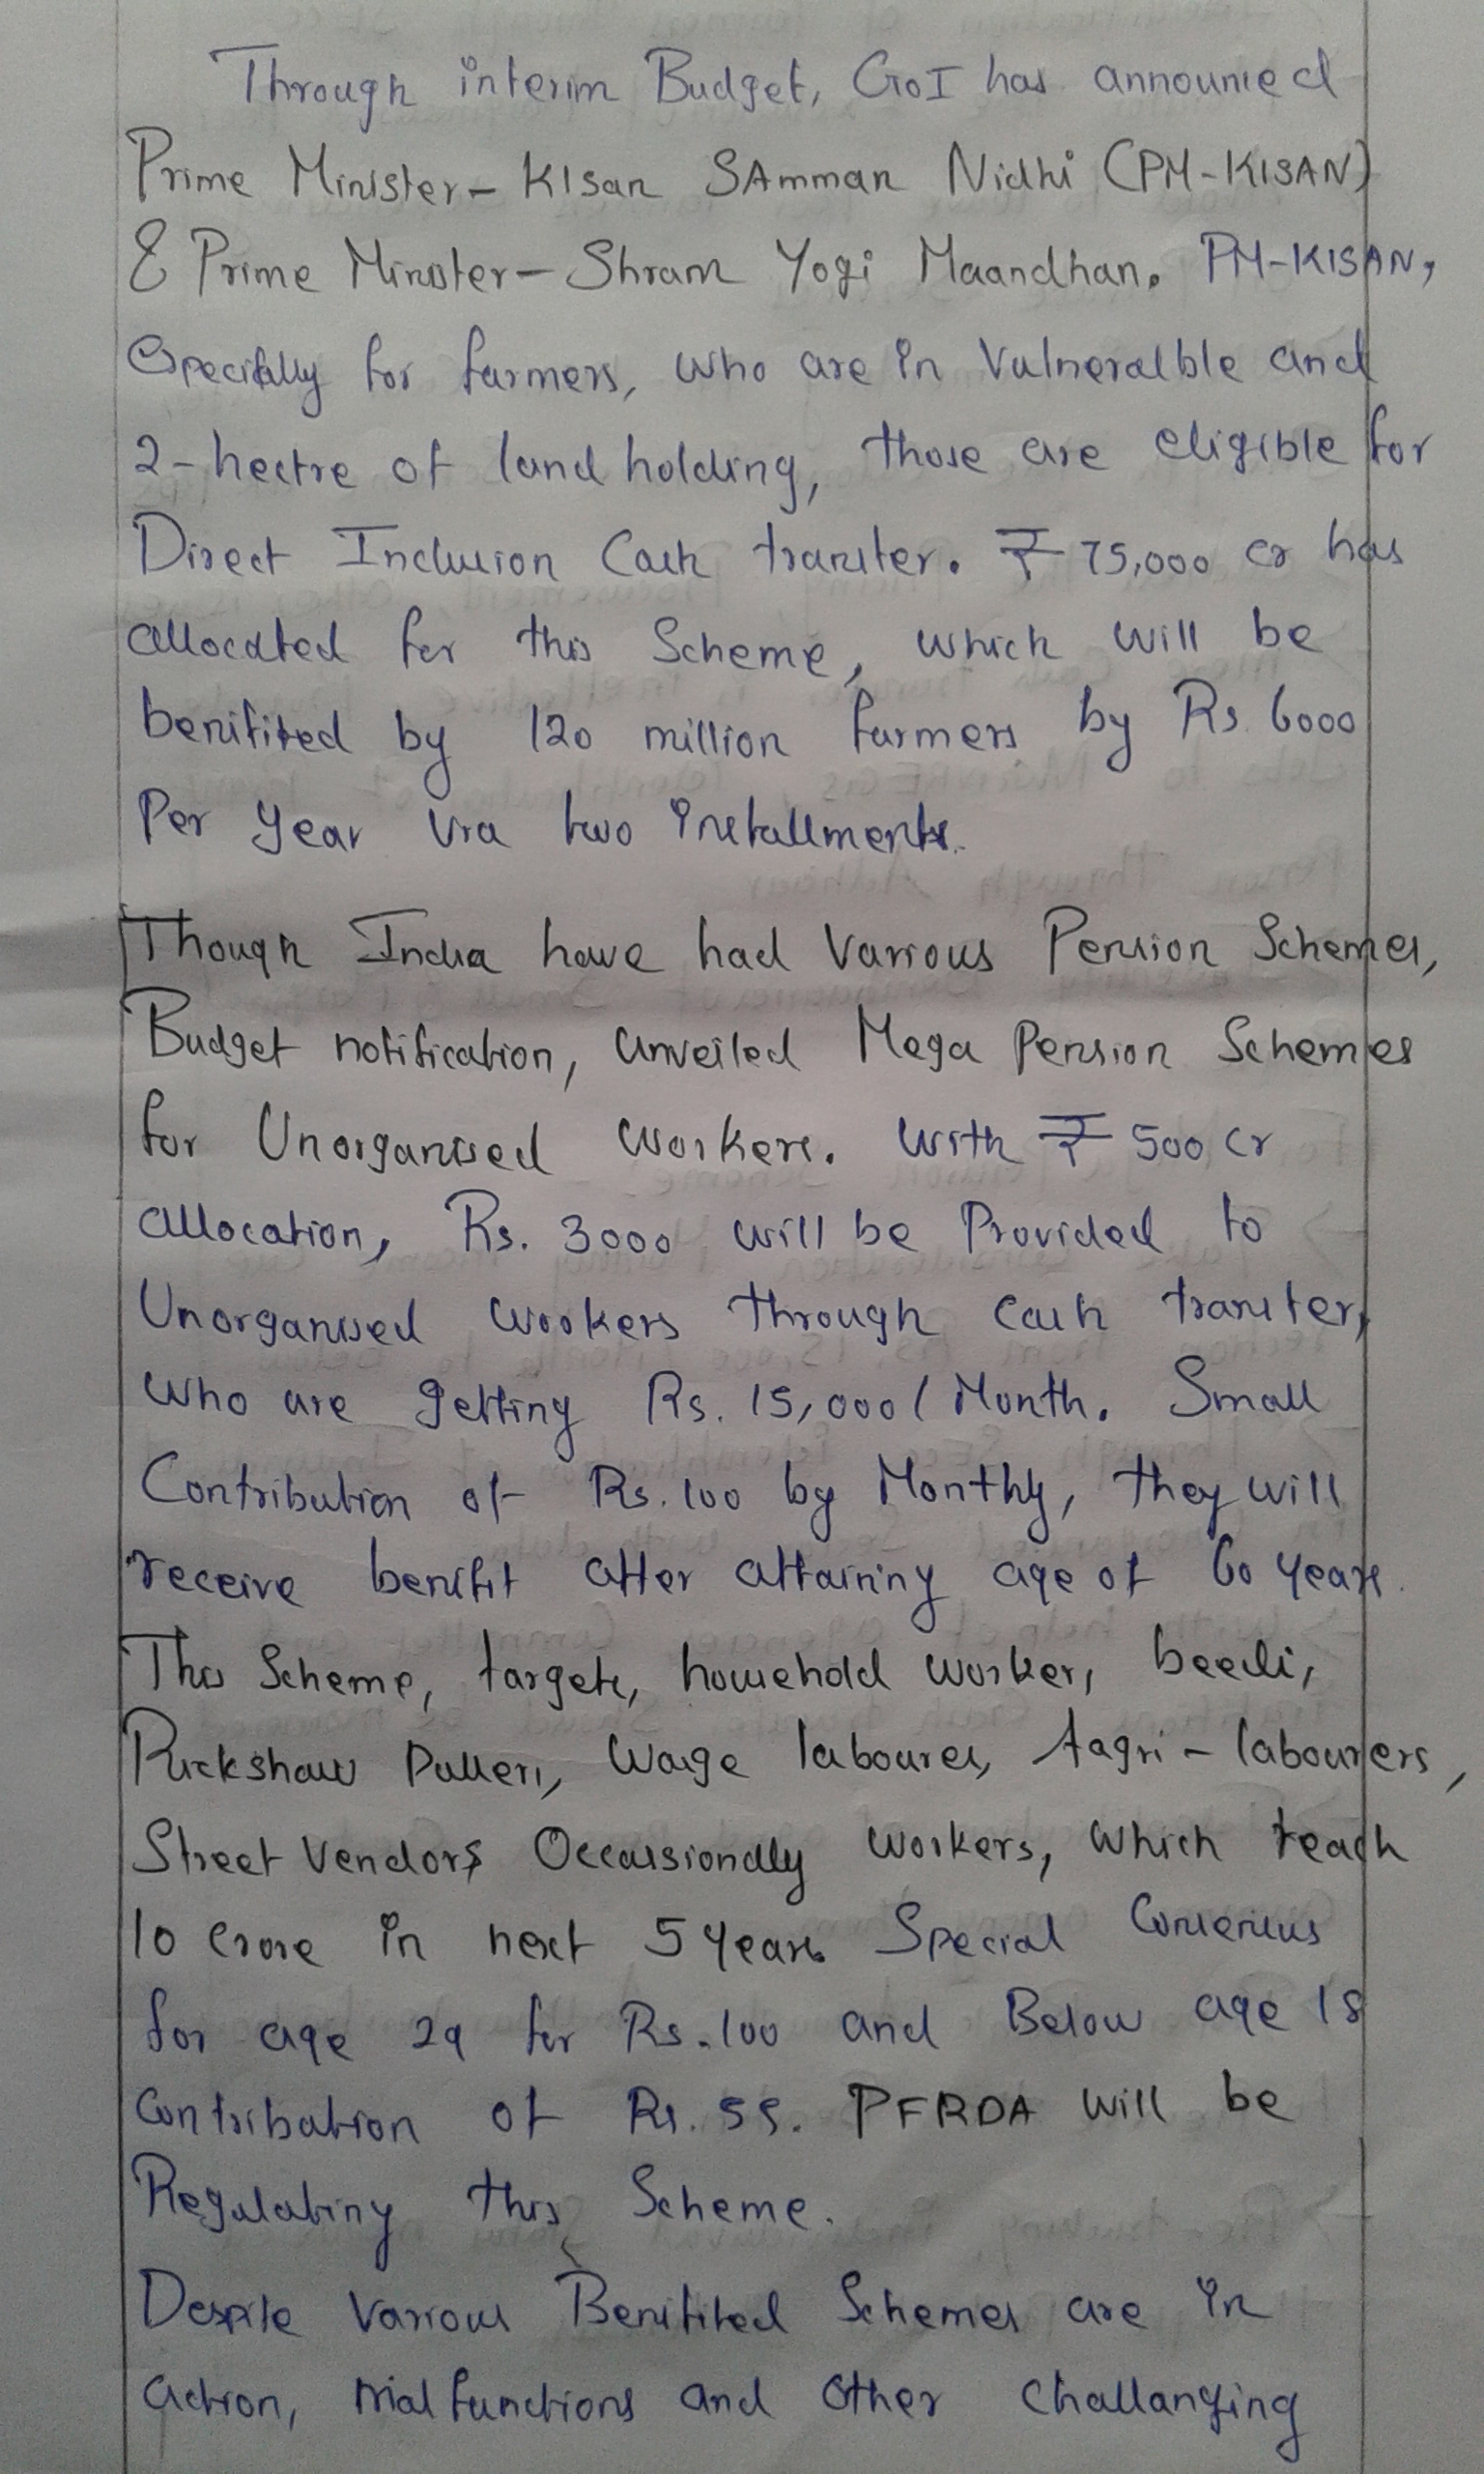 Through interim Budget, GoI has announced
Prime Minister - KIsan SAmman Nidhi (PM-KISAN)
& Prime Minister - Shram Yogi Maandhan. PM-KISAN,
especially for farmers, who are in Vulneralble and
2-hectre of land holding, those are eligible for
Direct Inclusion Cash transfer. ₹ 75,000 cr has
allocated for this Scheme, which will be
benifited by 120 million farmers by Rs. 6000
Per Year via two installments.
Though India have had Various Pension Schemes,
Budget notification, unveiled Mega Pension Schemes
for Unorganised workers. With ₹ 500 Cr
allocation, Rs. 3000 will be Provided to
Unorganised workers through cash transfer,
who are getting Rs. 15,000/Month. Small
Contribution of Rs. 100 by Monthly, they will
receive benifit after attaining age of 60 years.
This Scheme, targets, household worker, beedi,
Rickshaw Pullers, Wage labourers, Aagri-labourers,
Street Vendors Occassionally workers, which reach
10 Crore in next 5 years. Special
for age 29 for Rs. 100 and Below age 18
Contribution of Rs. 55. PFRDA will be
Regulating this Scheme.
Despite Various Benifited Schemes are in
action, malfunctions and other challanging